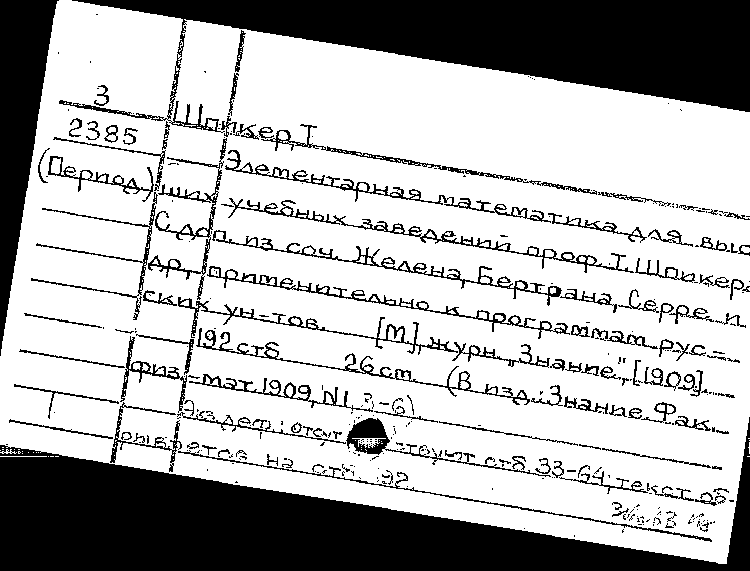 3
2385
(Период.)
Шпикер, Т
Элементарная математика для выс
ших учебных заведений проф. Т. Шпикера
С доп. из соч. Желена, Бертрана, Серре и
др., применительно к программам рус-
ских ун-тов. [М], журн. „Знание", [1909].
192 стб. 26 см. (В изд.: Знание. Фак.
физ.-мат. 1909, N1, 3-6).
Экз. деф.: отсут ствуют стб. 33-64; текст об-
рывается на стб. 192.